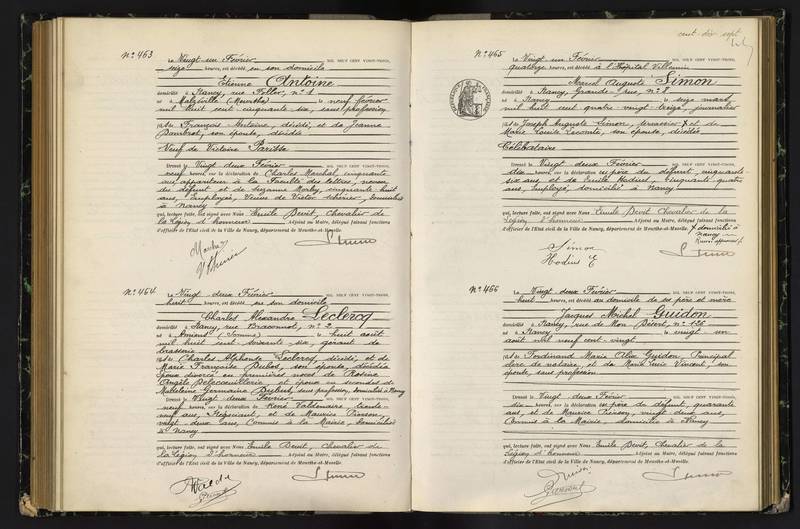 cent dix sept
N° 463
Le Vingt-un Février mil neuf cent vingt-trois,
seize heures, est décédé en son domicile
Etienne Antoine
domicilié à Nancy, rue n° 1
né à Malzéville (Meurthe) le neuf février
mil huit cent cinquante six, sans profession
fils de François Antoine, décédé, et de Jeanne
son épouse, décédée
Veuf de Victoire
Dressé le Vingt deux Février mil neuf cent vingt-trois,
neuf heures, sur la déclaration de Charles Marchal, cinquante
ans, appariteur à la Faculté des lettres, neveu
du défunt et de Suzanne cinquante huit
ans, Employée, Veuve de Victor domiciliés
à Nancy
qui, lecture faite, ont signé avec Nous Emile Chevalier de
la Légion d'honneur Adjoint au Maire, délégué faisant fonctions
d'officier de l'Etat civil de la Ville de Nancy, département de Meurthe-et-Moselle.
N° 464
Le Vingt deux Février mil neuf cent vingt-trois,
huit heures, est décédé en son domicile
Charles Alexandre Leclercq
domicilié à Nancy, rue Braconnot, n° 2
né à Amiens (Somme) le huit août
mil huit cent soixante-six, gérant de
brasserie
fils de Charles Alphonse Leclercq, décédé, et de
Marie Françoise Dubos, son épouse, décédée
époux divorcé en premières noces de Rosine
Angèle et époux en secondes de
Madeleine Germaine sans profession, domiciliée à Nancy
Dressé le Vingt deux Février mil neuf cent vingt-trois,
neuf heures, sur la déclaration de René trente
neuf ans, et de Maurice
vingt deux ans, Commis à la Mairie, domiciliés
à Nancy
qui, lecture faite, ont signé avec Nous Emile Chevalier de
la Légion d'honneur Adjoint au Maire, délégué faisant fonctions
d'officier de l'Etat civil de la Ville de Nancy, département de Meurthe-et-Moselle.
N° 465
Le Vingt-un Février mil neuf cent vingt-trois,
quatorze heures, est décédé à l'Hôpital Villemin
Marcel Auguste Simon
domicilié à Nancy, Grande rue, n° 8
né à Nancy le seize mars
mil huit cent quatre vingt-treize, journalier
fils de Joseph Auguste Simon, terrassier X et de
Marie Louise Lecomte, son épouse, décédée
Célibataire
Dressé le Vingt deux Février mil neuf cent vingt-trois,
dix heures, sur la déclaration du père du défunt, cinquante
six ans et de Emile cinquante quatre
ans, Employé, domicilié à Nancy
qui, lecture faite, ont signé avec Nous Emile Chevalier de la
Légion d'honneur Adjoint au Maire, délégué faisant fonctions
d'officier de l'Etat civil de la Ville de Nancy, département de Meurthe-et-Moselle.
X domicilié à
Nancy
Simon
N° 466
Le Vingt deux Février mil neuf cent vingt-trois,
huit heures, est décédé au domicile de ses père et mère
Jacques Michel Guidon
domicilié à Nancy, rue de Mon-Désert, n° 126
né à Nancy le vingt-un
août mil neuf cent vingt
fils de Ferdinand Marie Alix Guidon, Principal
clerc de notaire, et de Marie Lucie Vincent, son
épouse, sans profession
Dressé le Vingt deux Février mil neuf cent vingt-trois,
dix heures, sur la déclaration du père du défunt, quarante
ans, et de Maurice vingt deux ans,
Commis à la Mairie, domiciliés à Nancy
qui, lecture faite, ont signé avec Nous Emile Chevalier de la
Légion d'honneur Adjoint au Maire, délégué faisant fonctions
d'officier de l'Etat civil de la Ville de Nancy, département de Meurthe-et-Moselle.